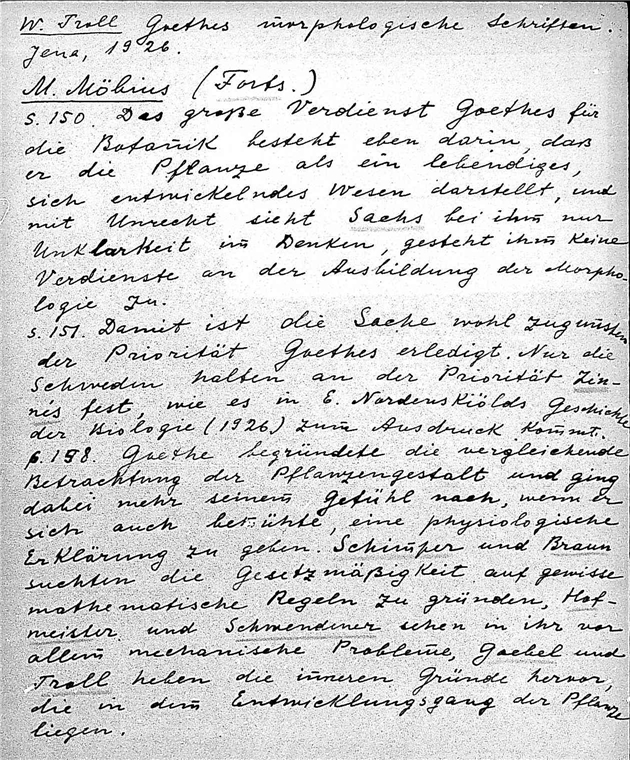 W. Troll Goethes morphologische Schriften.
Jena, 1926.
M. Möbius (Forts.)
S. 150. Das große Verdienst Goethes für
die Botanik besteht eben darin, daß
er die Pflanze als ein lebendiges,
sich entwickelndes Wesen darstellt, und
mit Unrecht sieht Sachs bei ihm nur
Unklarkeit im Denken, gesteht ihm keine
Verdienste an der Ausbildung der Morpho-
logie zu.
S. 151. Damit ist die Sache wohl zugunsten
der Priorität Goethes erledigt. Nur die
Schweden halten an der Priorität Lin-
nés fest, wie es in E. Nordenskiölds Geschichte
der Biologie (1926) zum Ausdruck kommt.
S. 158. Goethe begründete die vergleichende
Betrachtung der Pflanzengestalt und ging
dabei mehr seinem Gefühl nach, wenn er
sich auch bemühte, eine physiologische
Erklärung zu geben. Schimper und Braun
suchten die Gesetzmäßigkeit auf gewisse
mathematische Regeln zu gründen, Hof-
meister und Schwendener sehen in ihr vor
allem mechanische Probleme, Goebel und
Troll heben die inneren Gründe hervor,
die in dem Entwicklungsgang der Pflanze
liegen.